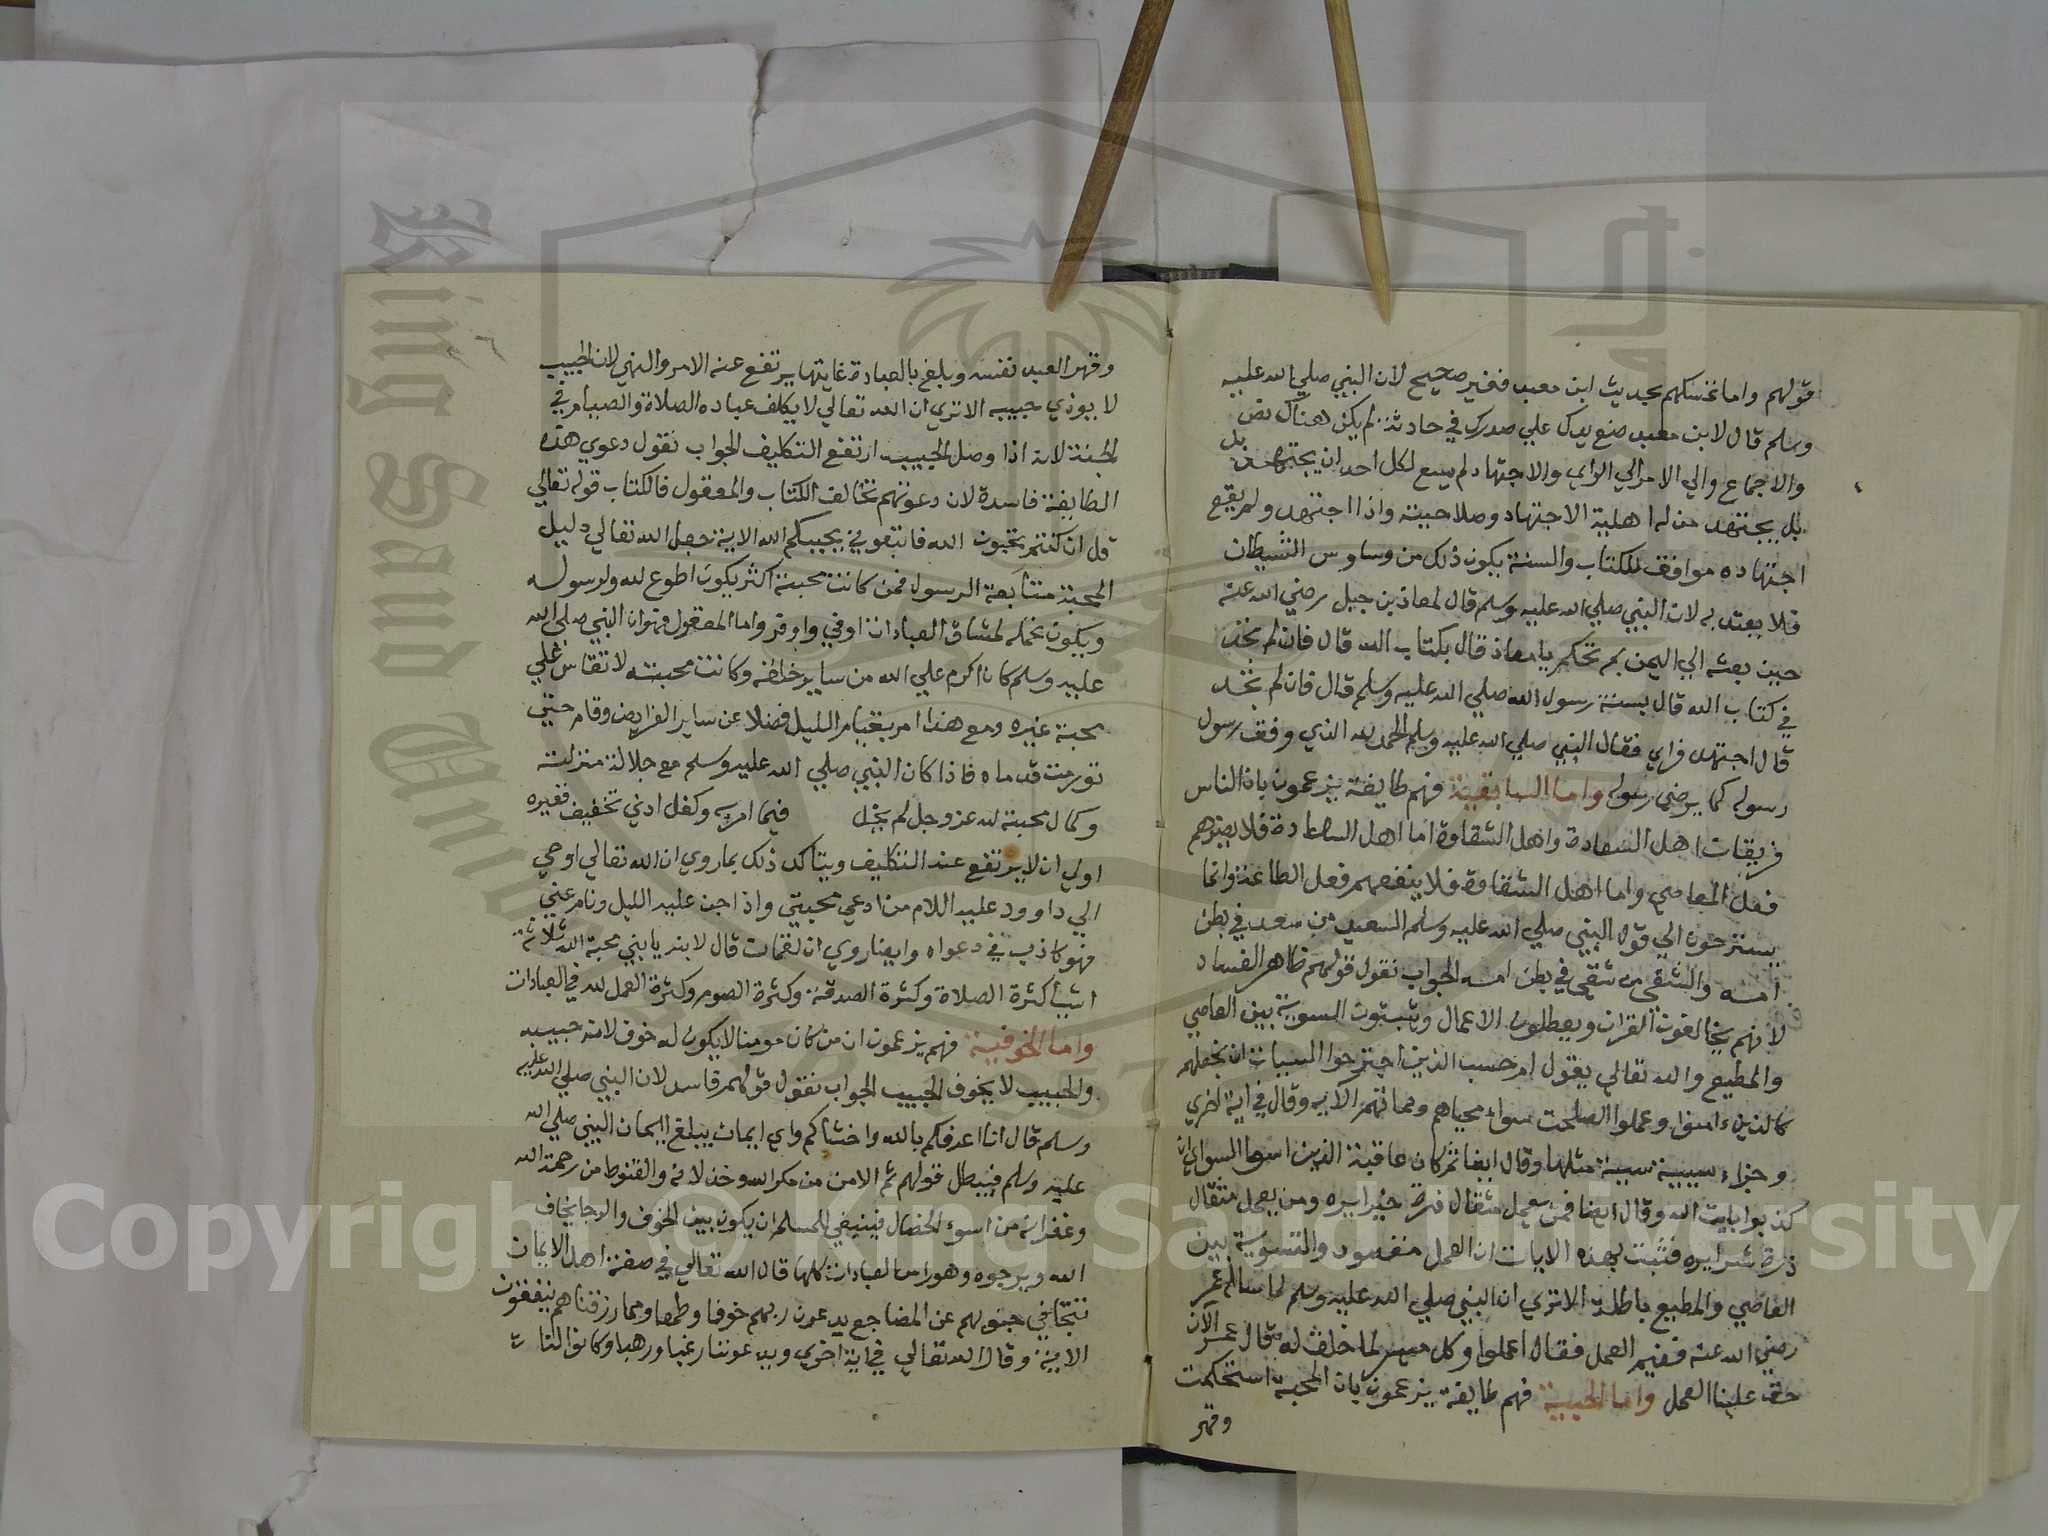 قولهم واما تمسكهم بحديث ابن معبد فغير صحيح لان النبي صلي الله عليه
وسلم قال لابن معبد صنع يدك علي صدرك في حادثة لم يكن هناك نص
والاجماع والي الامر الي الراي والاجتهاد لم يسع لكل احد ان يجتهد بل
بل يجتهد من له اهلية الاجتهاد وصلاحيته واذا اجتهد ولم يقع
اجتهاده موافقا للكتاب والسنة يكون ذلك من وساوس الشيطان
فلا يعتد به لان النبي صلي الله عليه وسلم قال لمعاذ بن جبل رضي الله عنه
حين بعثه الي اليمن بم تحكم يا معاذ قال بكتاب الله قال فان لم تجد
في كتاب الله قال بسنة رسول الله صلي الله عليه وسلم قال فان لم تجد
قال اجتهد فراي فقال النبي صلي الله عليه وسلم الحمد لله الذي وفق رسول
رسوله كما يرضي رسوله واما السابقية فهم طايفة يزعمون بان الناس
فريقان اهل السعادة واهل الشقاوة اما اهل السعادة فلا يضرهم
فعل المعاصي واما اهل الشقاوة فلا ينفعهم فعل الطاعة وانما
يستزحون الي قول النبي صلي الله عليه وسلم السعيد من سعد في بطن
امه والشقي من شقي في بطن امه الجواب نقول قولهم ظاهر الفساد
لانهم يخالفون القران ويعطلون الاعمال ويثبتون السوية بين العاصي
والمطيع والله تعالي يقول ام حسب الذين اجترحوا السيات ان نجعلهم
كالذين ءامنوا وعملوا الصلحت سواء محياهم ومماتهم الايه وقال في اية اخري
وجزاء سيية سيية مثلها وقال ايضا ثم كان عاقبة الذين اسوا السواي ان
كذبوا بايت الله وقال ايضا فمن يعمل مثقال ذرة خيرا يره ومن يعمل مثقال
ذرة شرا يره فثبت بهذه الايات ان العمل مقصود والتسوية بين
العاصي والمطيع باطلة الا تري ان النبي صلي الله عليه وسلم لما ساله عمر
رضي الله عنه ففيم العمل فقال اعملوا وكل ميسر لما خلق له فقال عمر الان
حق علينا العمل واما الحبية فهم طايفة يزعمون بان المحبة استحكمت
وقهر
وقهر العبد نفسه وبلغ بالعبادة غايتها يرتفع عنه الامر والنهي لان الحبيب
لا يوذي حبيبه الا تري ان الله تعالي لا يكلف عباده الصلاة والصيام في
الجنة لانه اذا وصل الحبيب ارتفع التكليف الجواب نقول دعوي هذه
الطايفة فاسدة لان دعوتهم تخالف الكتاب والمعقول فالكتاب قوله تعالي
قل ان كنتم تحبون الله فاتبعوني يحببكم الله الاية جعل الله تعالي دليل
المحبة متابعة الرسول فمن كانت محبته اكثر يكون اطوع لله ولرسوله
ويكون تحمله لمشاق العبادات اوفي واوفر واما المعقول فهو ان النبي صلي الله
عليه وسلم كان اكرم علي الله من ساير خلقه وكانت محبته لا تقاس علي
محبة غيره ومع هذا امر بقيام الليل فضلا عن ساير الفرايض وقام حتي
تورمت قدماه فاذا كان النبي صلي الله عليه وسلم مع جلالة منزلته
وكمال محبة لله عز وجل لم يخل فيما امر به وكفل ادني تخفيف فغيره
اولي ان لا يرتفع عنه التكليف ويتاكد ذلك بما روي ان الله تعالي اوحي
الي داوود عليه اللام من ادعي محبتي واذا جن عليه الليل ونام عني
فهو كاذب في دعواه وايضا روي ان لقمان قال لابنه يا بني محبة الله ثلاثة
اشيا كثرة الصلاة وكثرة الصدقة وكثرة الصوم وكثرة العمل لله في العبادات
واما الخوفية فهم يزعمون ان من كان مومنا لا يكون له خوف لانه حبيبه
والحبيب لا يخوف الحبيب الجواب نقول قولهم فاسد لان النبي صلي الله عليه
وسلم قال انا اعرفكم بالله واخشاكم واي ايمان يبلغ ايمان النبي صلي الله
عليه وسلم فيبطل قولهم ثم الامن من مكر الله وخذلانه والقنوط من رحمة الله
وغفرانه من اسوء الخصال فينبغي للمسلم ان يكون بين الخوف والرجا يخاف
الله ويرجوه وهو راس العبادات كلها قال الله تعالي في صفة اهل الايمان
تتجافي جنوبهم عن المضاجع يدعون ربهم خوفا وطمعا ومما رزقناهم ينفقون
الاية وقال الله تعالي في اية اخري ويدعوننا رغبا ورهبا وكانوا لنا
Copyright © King Saud University
King Saud University